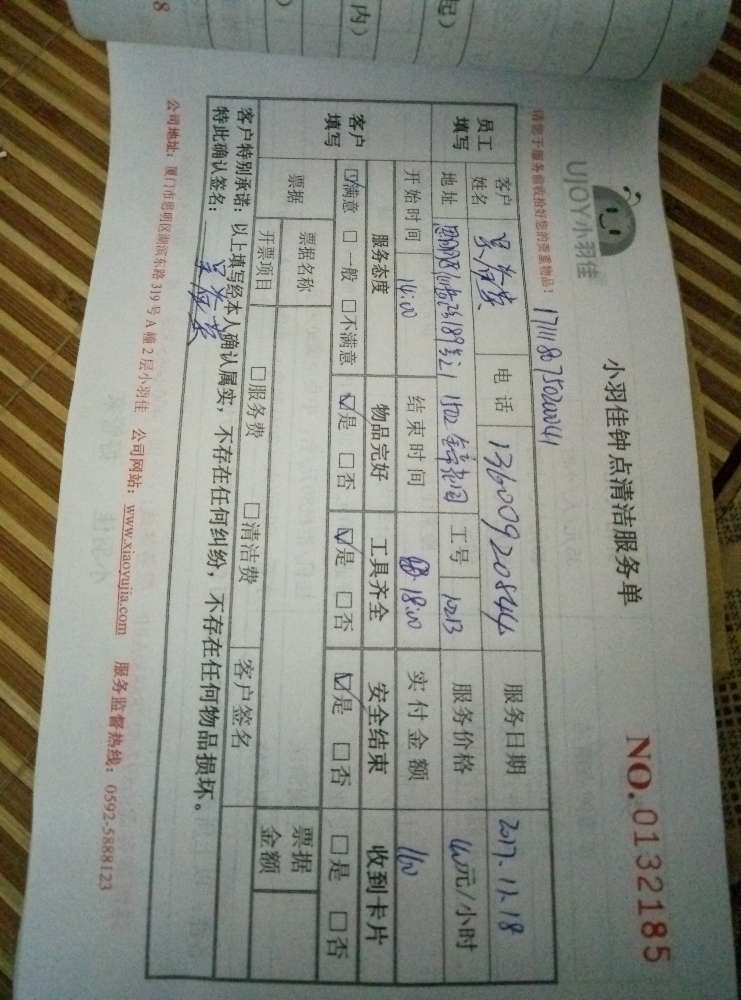 UJOY小羽佳
小羽佳钟点清洁服务单
NO.0132185
请您于服务前收拾好您的贵重物品!
17111875020041
员工填写 客户姓名 电话 13600920844 服务日期 2017.11.18
地址 189号 1502 工号 1213 服务价格 40元/小时
开始时间 14:00 结束时间 18:00 实付金额 160
客户填写 服务态度 物品完好 工具齐全 安全结束 收到卡片
☑满意 □一般 □不满意 ☑是 □否 ☑是 □否 ☑是 □否 □是 □否
票据 票据名称 □服务费 □清洁费 客户签名 票据金额
开票项目
客户特别承诺:以上填写经本人确认属实,不存在任何纠纷,不存在任何物品损坏。
特此确认签名:
公司地址:厦门市思明区湖滨东路319号A幢2层小羽佳 公司网站:www.xiaoyujia.com 服务监督热线:0592-5888123
起)
内)
8